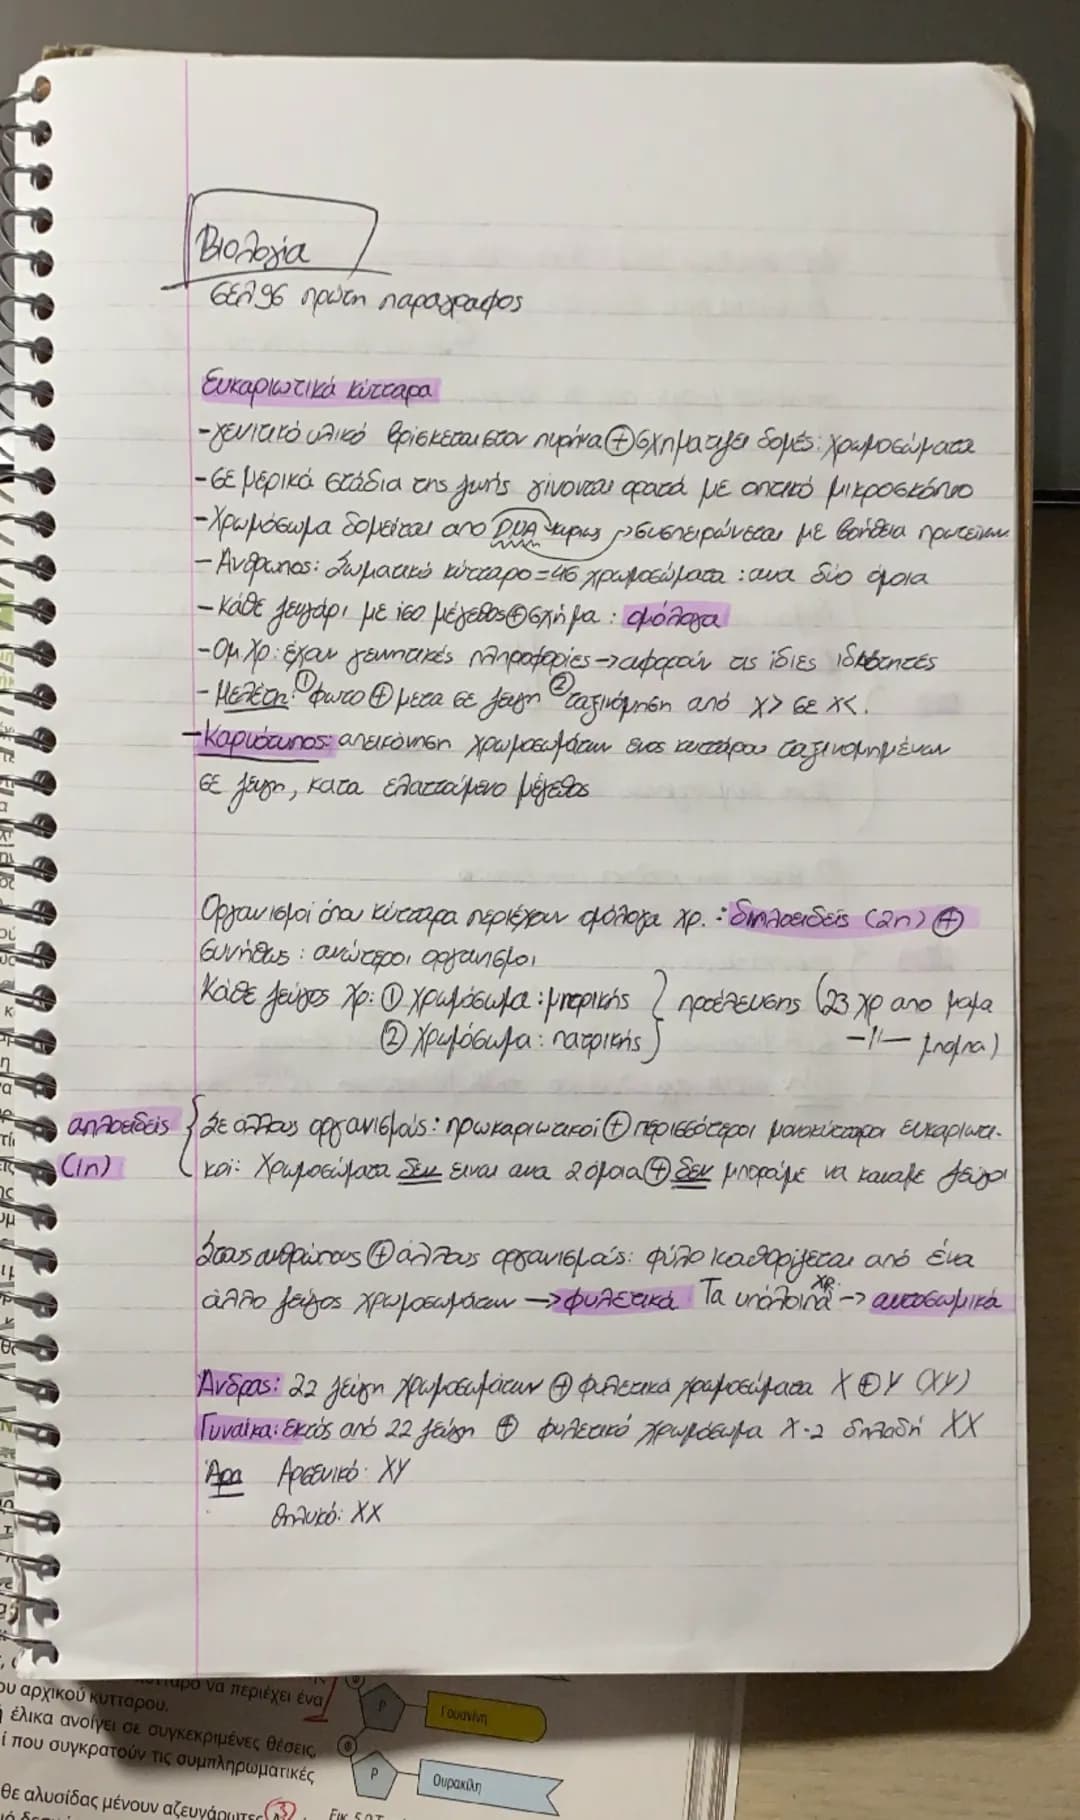 Βιολογία
σελ 96 πρώτη παράγραφος
Ευκαριωτικά κύτταρα
-γενετικό υλικό βρίσκεται στον πυρήνα ⊕ σχηματίζει δομές: χρωμοσώματα
-σε μερικά στάδια της ζωής γίνονται ορατά με οπτικό μικροσκόπιο
-Χρωμόσωμα δομείται από DNA κυρίως → συσπειρώνεται με βοήθεια πρωτεϊνών
-Άνθρωπος: Σωματικό κύτταρο=46 χρωμοσώματα : ανα δύο όμοια
-κάθε ζευγάρι με ίσο μέγεθος ⊕ σχήμα : ομόλογα
-Ομ. Χρ: έχουν γενετικές πληροφορίες → αφορούν τις ίδιες ιδιότητές
-Μελέτη: ① φωτο ⊕ μετα σε ζεύγη ② ταξινόμηση από χ> σε χ<.
-Καρυότυπος: απεικόνιση χρωμοσωμάτων ενός κυττάρου ταξινομημένων
σε ζεύγη, κατα ελαττώμενο μέγεθος
Οργανισμοί όπου κύτταρα περιέχουν ομόλογα χρ. : διπλοειδείς (2n) ⊕
συνήθως : ανώτεροι οργανισμοι
Κάθε ζεύγος Χρ: ① χρωμόσωμα : μητρικής } προέλευσης (23 χρ απο μαμα
② Χρωμόσωμα : πατρικής } -//- μπαμπα)
απλοειδείς { Σε άλλους οργανισμούς: προκαριωτικοί ⊕ περισσότεροι μονοκύτταροι ευκαριωτι-
(1n) κοί: Χρωμοσώματα δεν ειναι ανα 2 όμοια ⊕ δεν μπορούμε να κάνουμε ζεύγοι
Στους ανθρώπους ⊕ άλλους οργανισμούς: φύλο καθορίζεται από ένα
άλλο ζεύγος χρωμοσωμάτων → φυλετικά Τα υπόλοιπα χρ. → αυτοσωμικά
Άνδρας: 22 ζεύγη χρωμοσωμάτων ⊕ φυλετικά χρωμοσώματα Χ ⊕ Υ (ΧΥ)
Γυναίκα: εκτός από 22 ζεύγη ⊕ φυλετικό χρωμόσωμα Χ-2 δηλαδή ΧΧ
Άρα Αρσενικό: ΧΥ
Θηλυκό: ΧΧ
να περιέχει ένα
ου αρχικού κυττάρου.
έλικα ανοίγει σε συγκεκριμένες θέσεις,
ί που συγκρατούν τις συμπληρωματικές
θε αλυσίδας μένουν αζευγάρωτες
P Γουανίνη
P Ουρακίλη